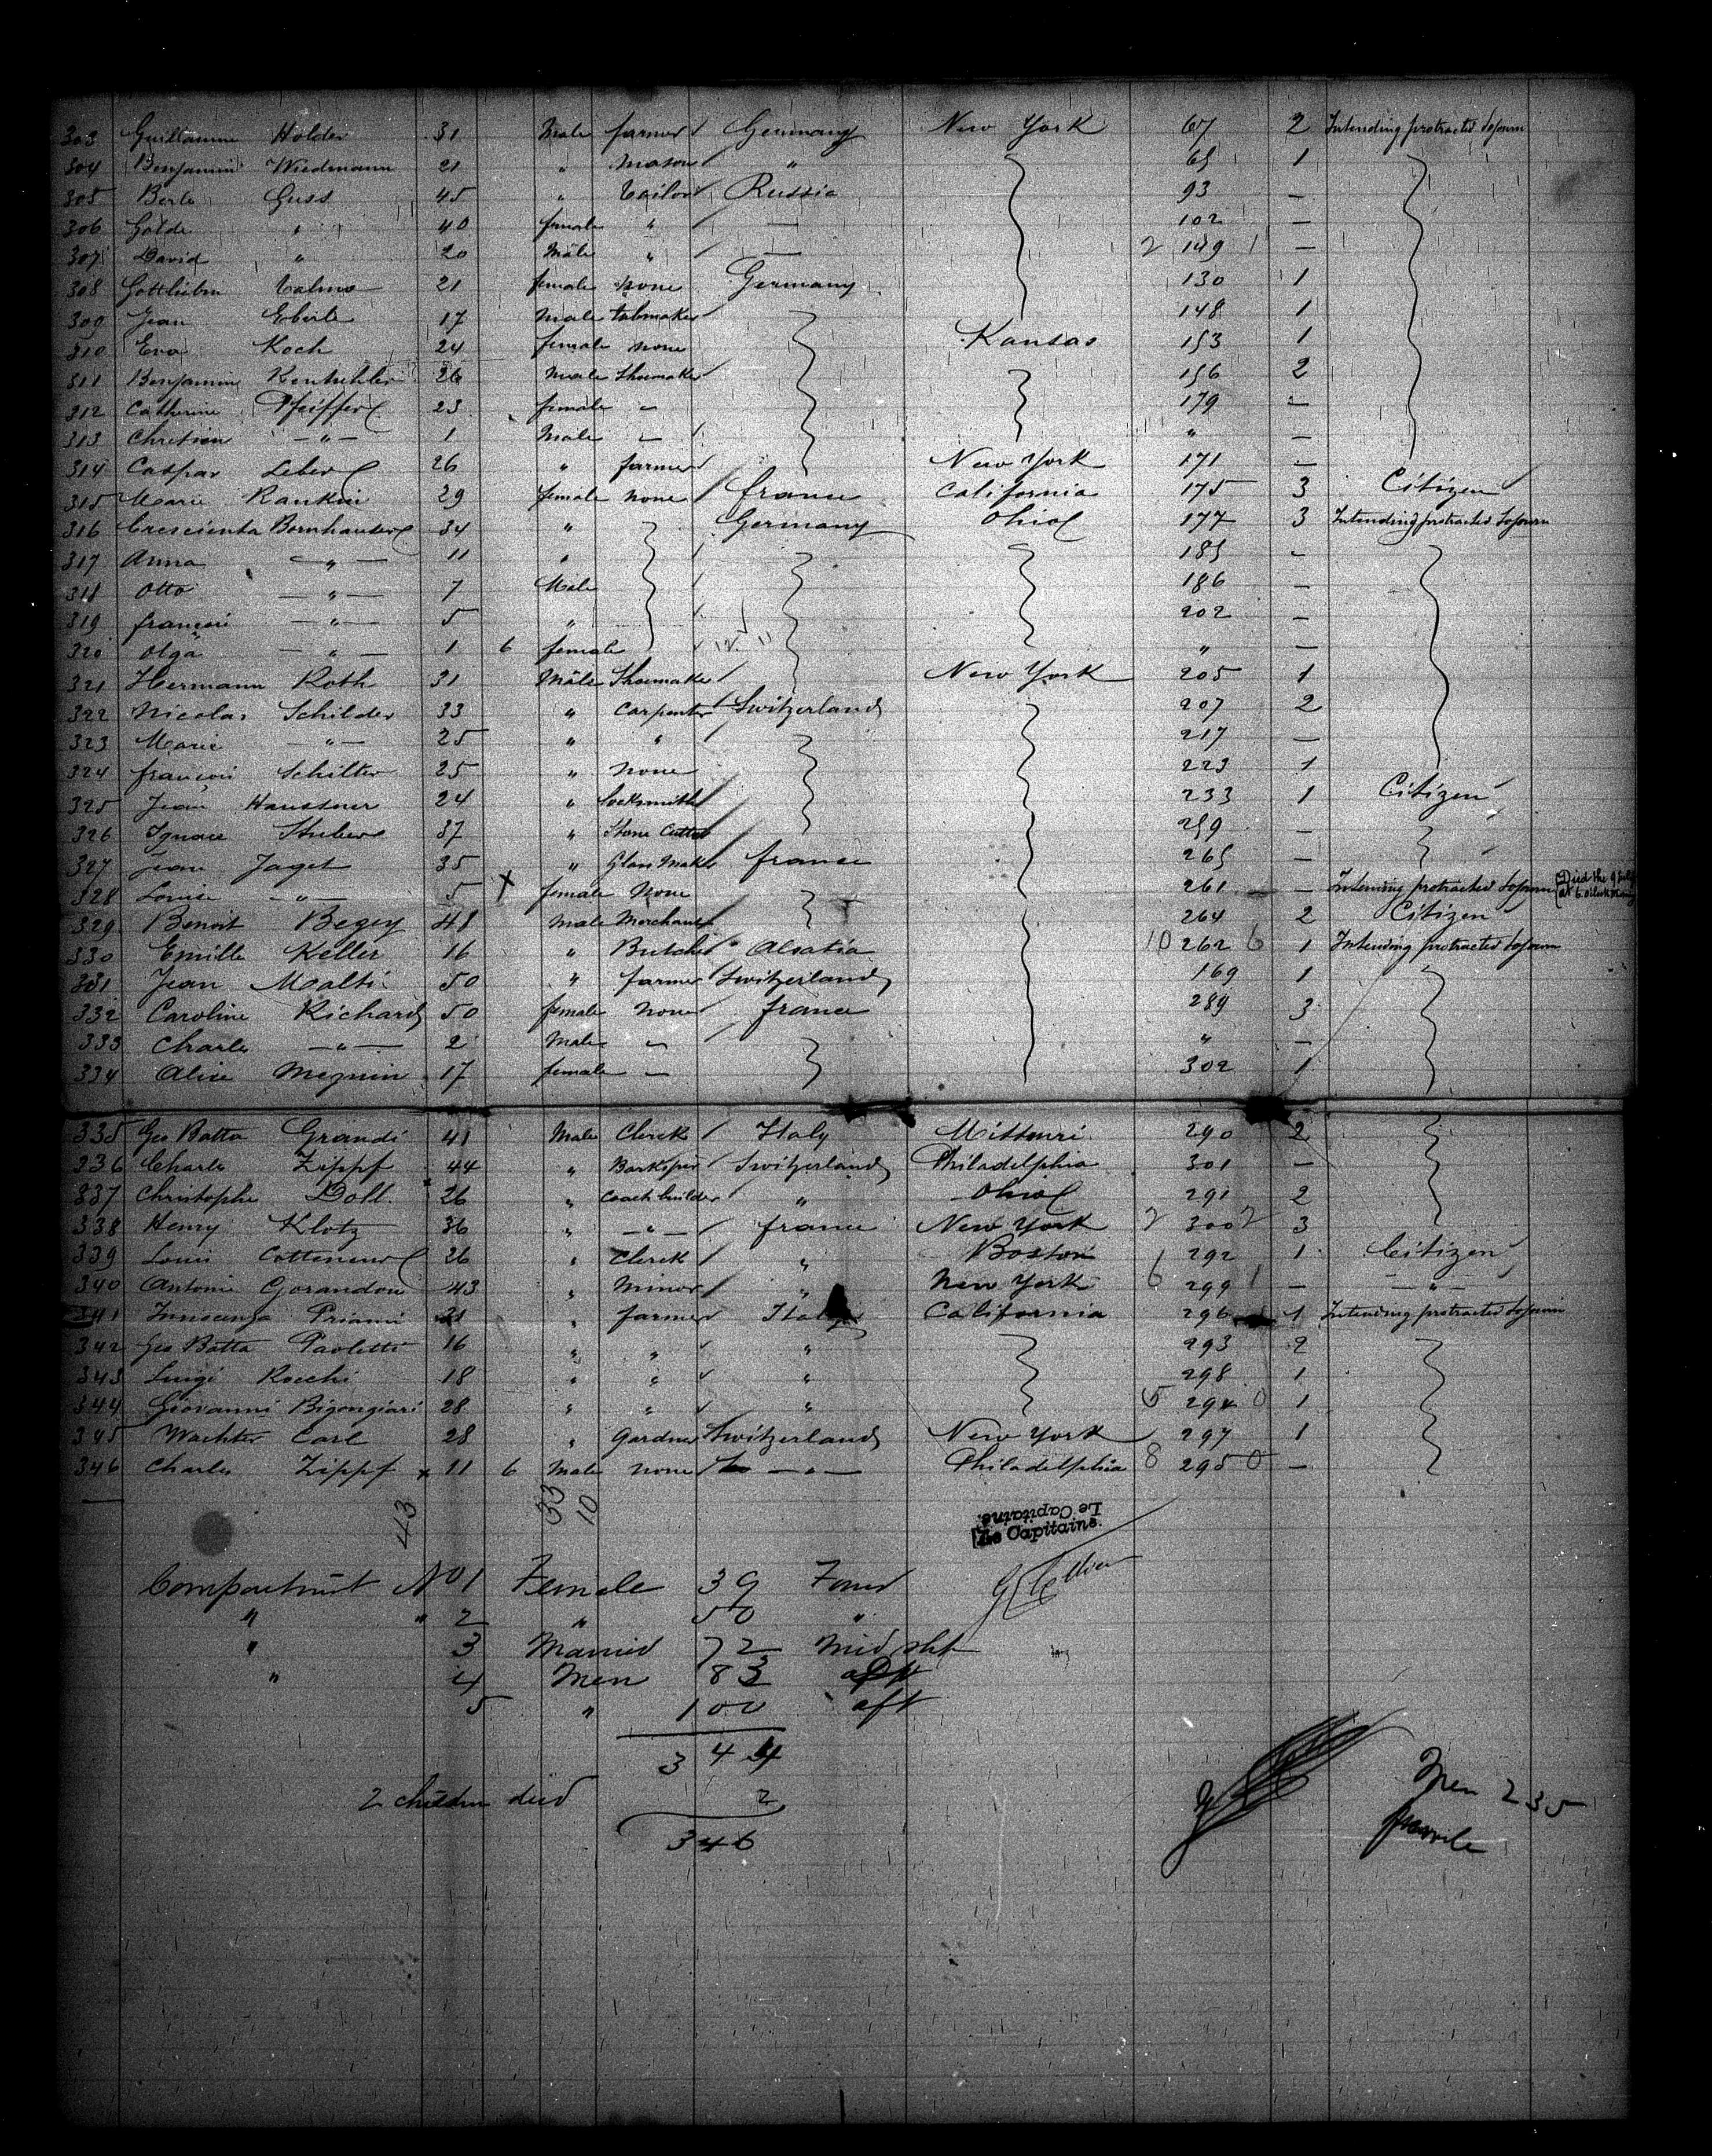 303 Guillaume Holder 31 Male farmer Germany New York 67 2 Intending protracted Sojourn
304 Benjamin Wiedmann 21 " Mason " 65 1
305 Berle Guss 45 " tailor Russia 93 —
306 Golde " 40 female " — 102 —
307 David " 20 Male " — 2 149 1 —
308 Gottlieben 21 female none Germany 130 1
309 Jean Eberle 17 Male 148 1
310 Eva Koch 24 female none Kansas 153 1
311 Benjamin 26 Male Shoemaker 156 2
312 Catherine Pfeiffer 23 female — 179 —
313 Chretien — " — 1 Male — " —
314 Caspar Leber 26 " farmer New York 171 —
315 Marie Rankin 29 female none france California 175 3 Citizen
316 Crescienta Bornhauser 34 " Germany Ohio 177 3 Intending protracted Sojourn
317 Anna — " — 11 " 185 —
318 Otto — " — 7 Male 186 —
319 francois — " — 5 " 202 —
320 Olga — " — 1 6 female " —
321 Hermann Roth 31 Male Shoemaker New York 205 1
322 Nicolas Schilder 33 " Carpenter Switzerland 207 2
323 Marie — " — 25 " " 217 —
324 francois Schilter 25 " none 223 1
325 Jean Haussner 24 " Locksmith 233 1 Citizen
326 Ignace Stuber 37 " Stone Cutter 259 —
327 Jean Jaget 35 " Glass Maker france 265 —
328 Louise — " — 5 X female None 261 — Intending protracted Sojourn Died the 9 July at 6 oclock
329 Benoit Begey 41 Male Merchant 264 2 Citizen
330 Emille Keller 16 " Butcher Alsatia 10 262 6 1 Intending protracted Sojourn
331 Jean Malti 50 " farmer Switzerland 169 1
332 Caroline Richard 50 female none france 289 3
333 Charles — " — 2 Male — " —
334 Alice Megnin 17 female — 302 1
335 Geo Batta Grandi 41 Male Clerck Italy Missouri 290 2
336 Charles Zippf 44 " Switzerland Philadelphia 301 —
337 Christophe Doll 26 " Coach builder " Ohio 291 2
338 Henry Klotz 36 " — " — france New York 2 300 2 3
339 Louis 26 " Clerck " Boston 292 1 Citizen
340 Antoine Gorandon 43 " Minor " New York 6 299 1 — — " —
341 Innocenza Priami 21 " farmer Italy California 296 1 Intending protracted Sojourn
342 Geo Batta Paoletti 16 " " " 293 2
343 Luigi Rocchi 18 " " " 298 1
344 Giovanni Bigongiari 28 " " " 5 294 0 1
345 Wachter Carl 28 " Gardner Switzerland New York 297 1
346 Charles Zippf x 11 6 Male none — " — Philadelphia 8 295 0 —
43 33 10
Le Capitaine.
Le Capitaine.
Compartment No 1 Female 39 Forwd
" " 2 " 50 "
" 3 Married 72 Mid ship
" 4 Men 83 aft
5 " 100 aft
344
2 children died 2
346
Men 235